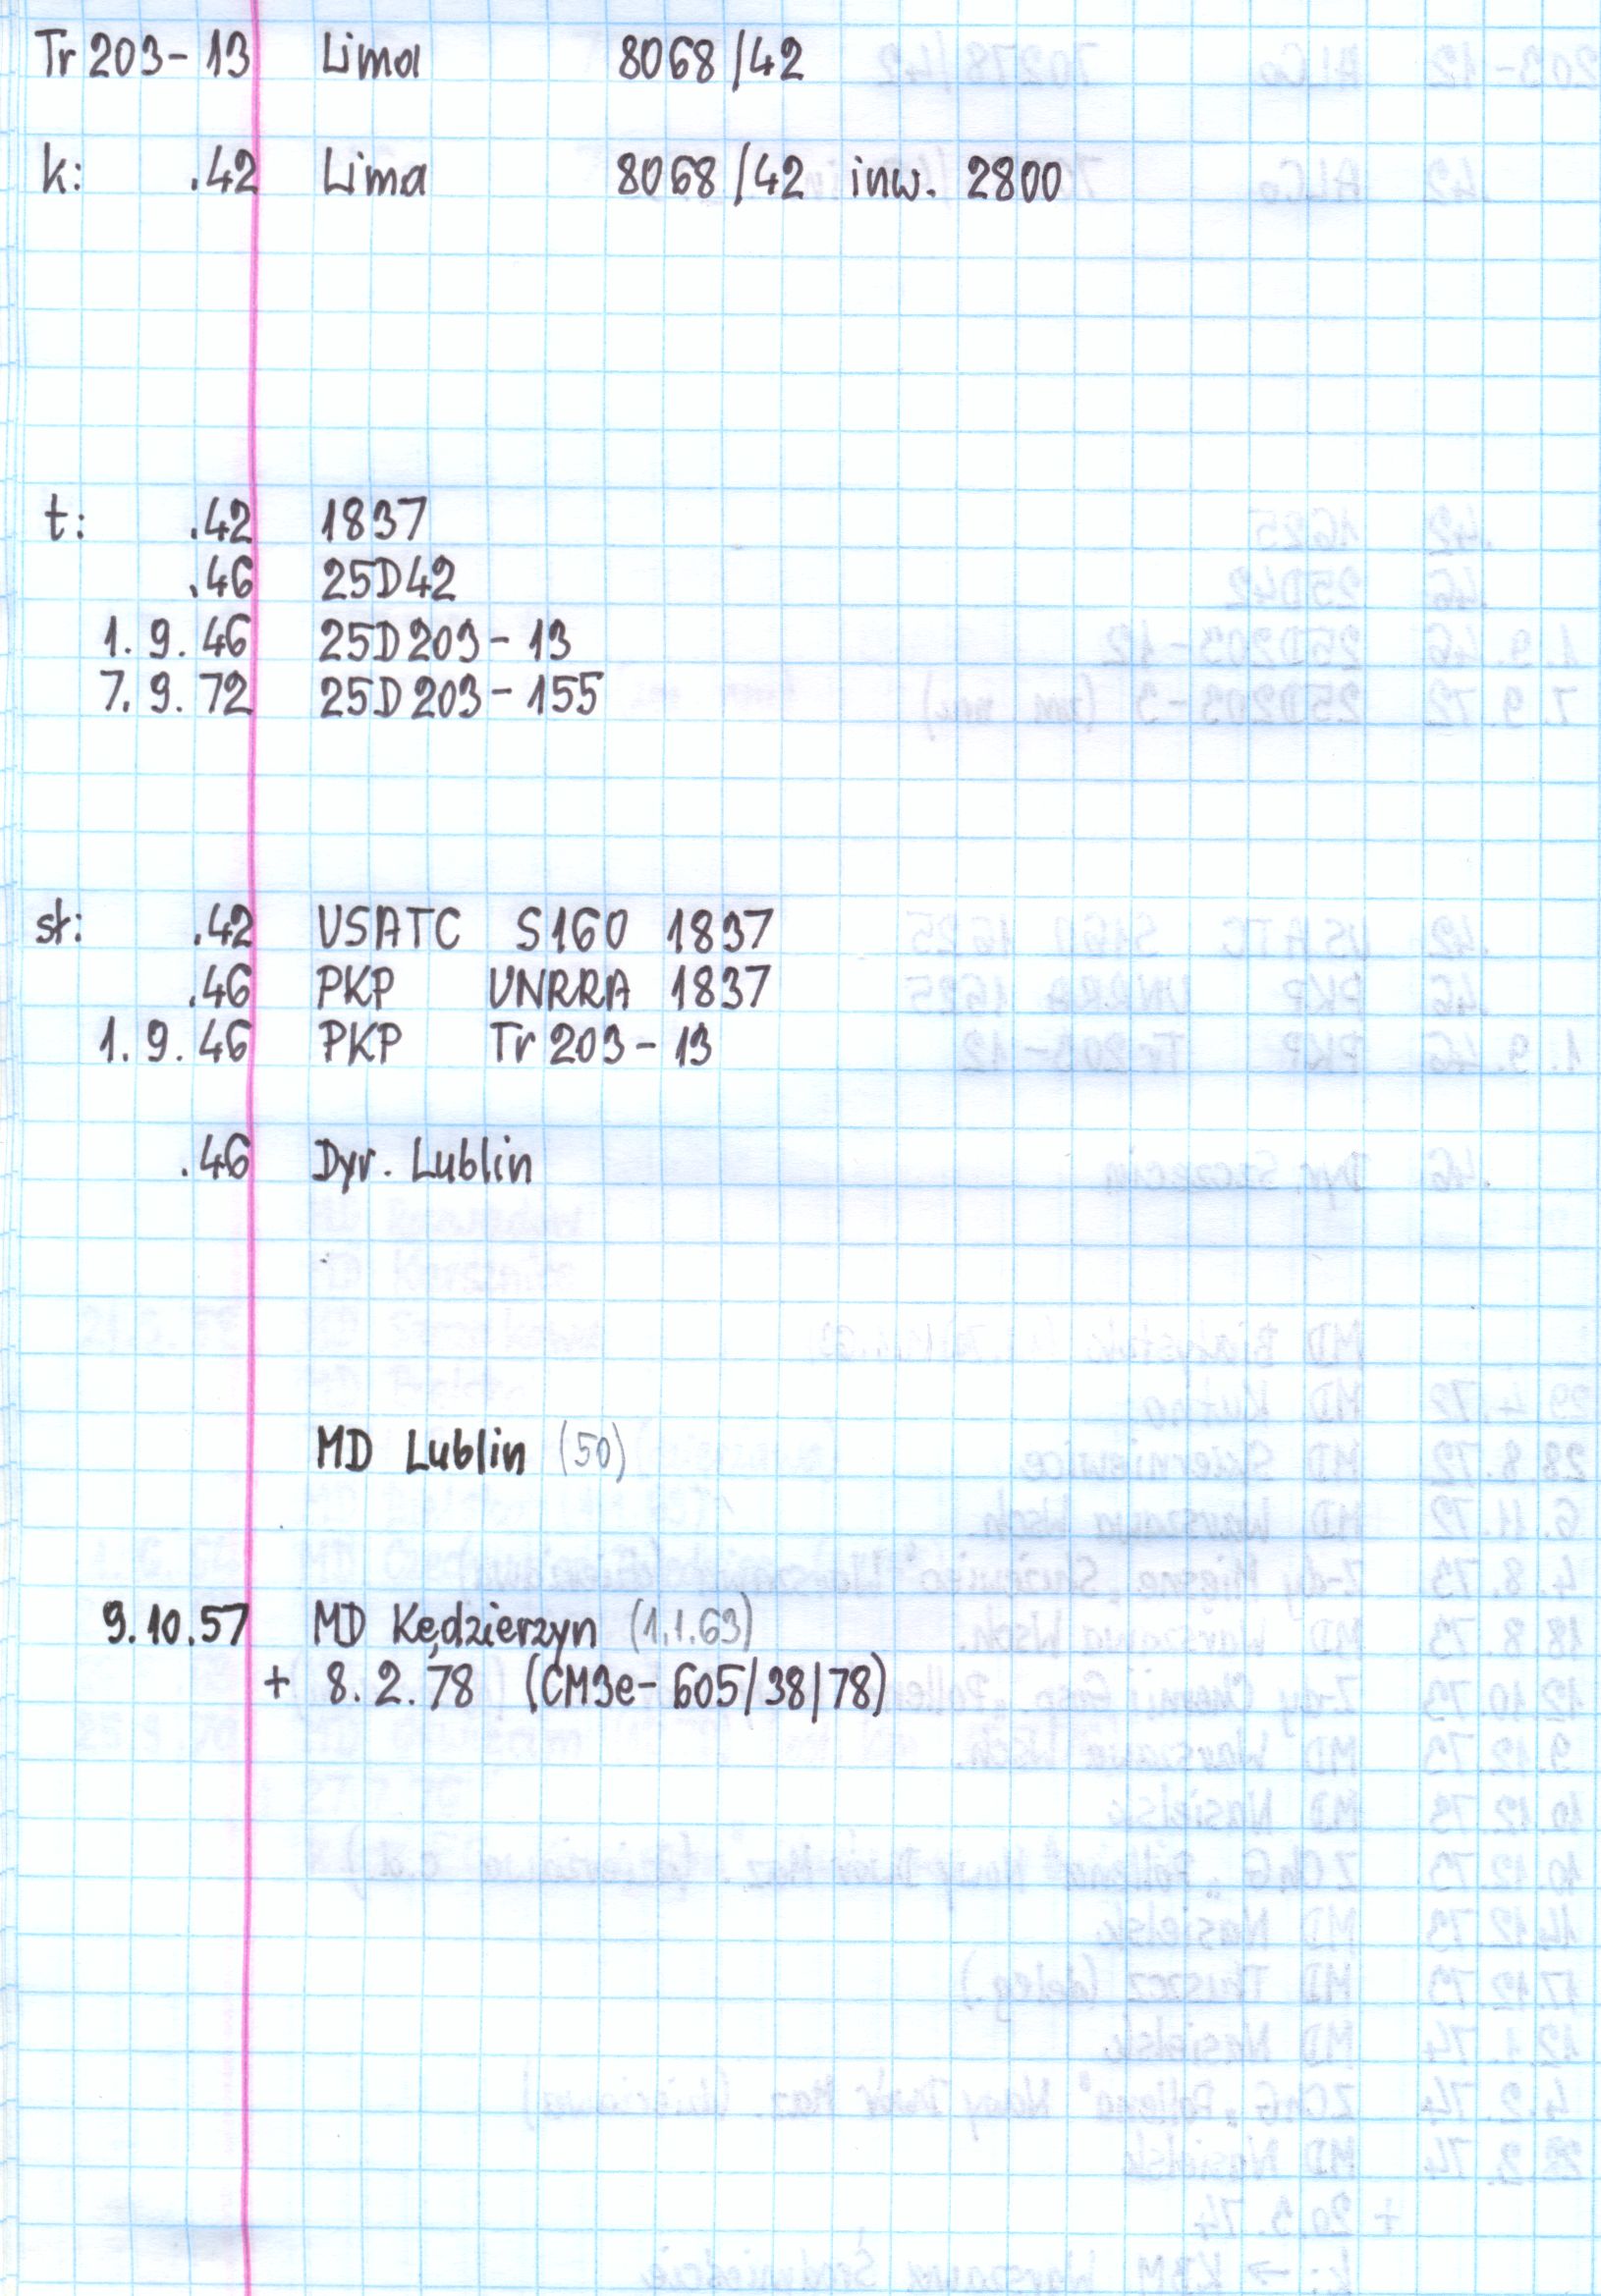 Tr 203-13 Lima 8068/42
k: .42 Lima 8068/42 inw. 2800
t: .42 1837
.46 25D42
1.9.46 25D203-13
7.9.72 25D203-155
sł: .42 USATC S160 1837
.46 PKP UNRRA 1837
1.9.46 PKP Tr 203-13
.46 Dyr. Lublin
MD Lublin (50)
9.10.57 MD Kędzierzyn (1.1.63)
+ 8.2.78 (CM3e-605/38/78)